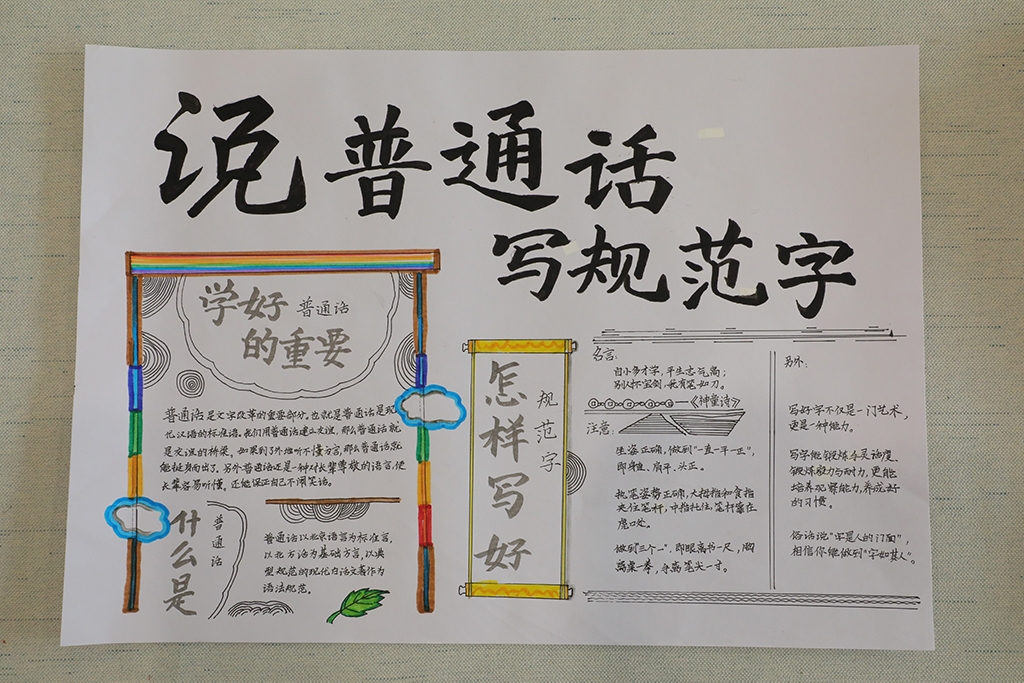 说普通话
写规范字
学好普通话
的重要
普通话是文字改革的重要部分。也就是普通话是现
代汉语的标准语。我们用普通话建立友谊，那么普通话就
是交谊的桥梁。如果到了外地听不懂方言，那么普通话就
能挺身而出了。另外普通话还是一种对长辈尊敬的语言，使
长辈容易听懂，还能保证自己不闹笑话。
什么是
普通话
普通话以北京语言为标准音，
以北方话为基础方言，以典
型规范的现代白话文著作为
语法规范。
怎样写好
规范字
名言：
自小多才学，平生志气高；
别人怀宝剑，我有笔如刀。
——《神童诗》
注意：
坐姿正确，做到“一直一平一正”，
即身直、肩平、头正。
执笔姿势正确，大拇指和食指
夹住笔杆，中指托住，笔杆靠在
虎口处。
做到“三个一”，即眼离书一尺，胸
离桌一拳，手离笔尖一寸。
另外：
写好字不仅是一门艺术，
更是一种能力。
写字能锻炼灵活度
锻炼毅力与耐力，更能
培养观察能力，养成好
的习惯。
俗话说“字是人的门面”，
相信你能做到“字如其人”。